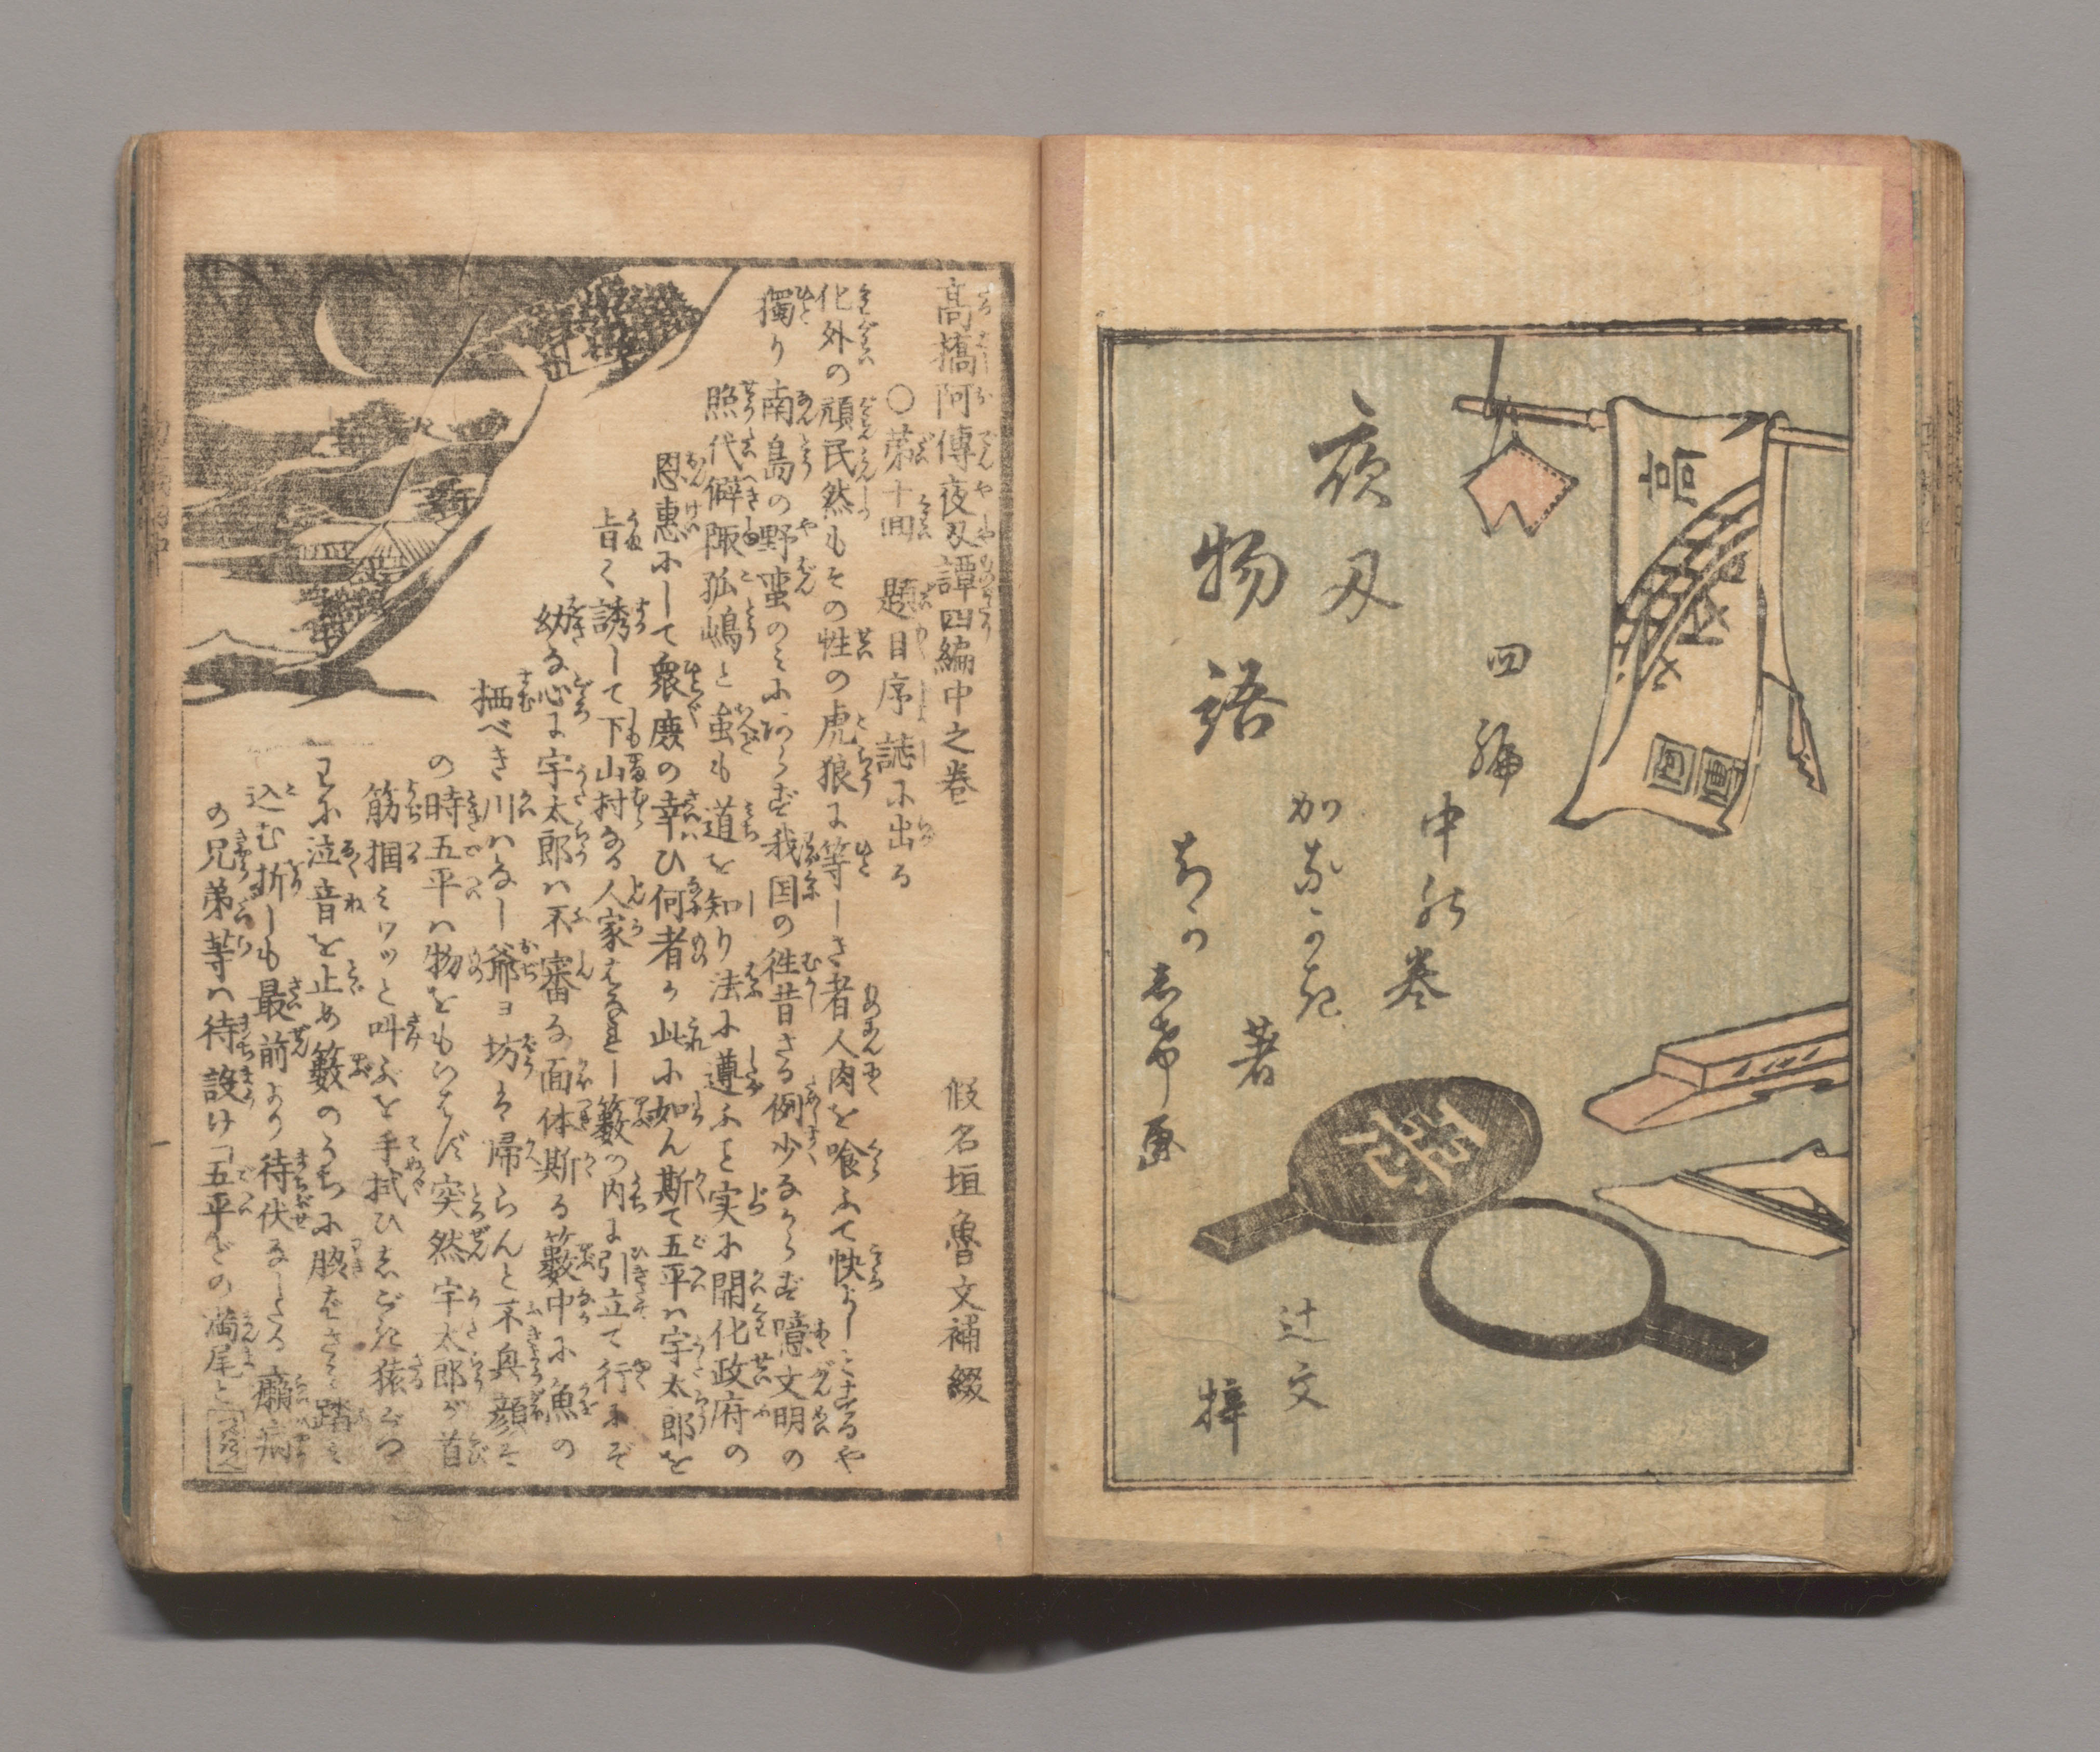 夜刃
物語
四編
中の巻
著
画
辻文
梓
高橋阿傳夜刃譚四編中之巻
○第十回 題目序誌に出る
假名垣魯文補綴
化外の頑民然もその性の虎狼に等しき者人肉を喰ふて快よしとするや
獨り南島の野蛮のみにあらず我国の徃昔さる例少なからず噫文明の
照代僻陬孤嶋と虽も道を知り法に遵ふと実に開化政府の
恩惠にして衆庶の幸ひ何者か此に如ん斯て五平ハ宇太郎を
旨く誘して下山村なる人家はなれし藪の内に引立て行にぞ
幼な心に宇太郎ハ不審な面体斯る藪中に魚の
栖べき川ハなし爺ヨ坊は帰らんと不興顔を
の時五平ハ物をもいはず突然宇太郎が首
筋掴ミワッと叫ぶを手拭ひ
に泣音を止め藪のうちに
込む折しも最前より待伏なしたる癩病
の兄弟等ハ待設け「五平どの